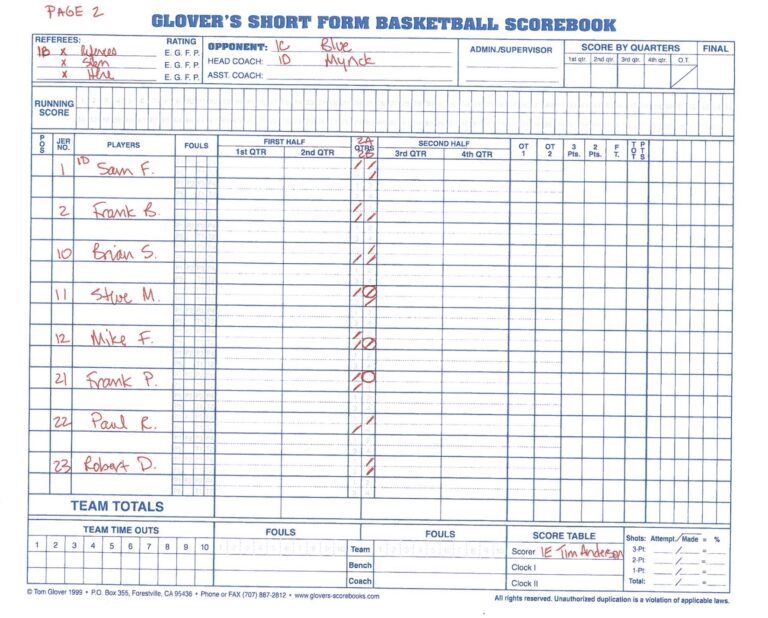 PAGE 2
GLOVER'S SHORT FORM BASKETBALL SCOREBOOK
REFEREES: RATING
1B x Referees E. G. F. P.
x Sign E. G. F. P.
x Here E. G. F. P.
OPPONENT: 1C Blue
HEAD COACH: 1D Mynck
ASST. COACH:
ADMIN./SUPERVISOR
SCORE BY QUARTERS FINAL
1st qtr. 2nd qtr. 3rd qtr. 4th qtr. O.T.
RUNNING SCORE
POS JER NO. PLAYERS FOULS FIRST HALF 1st QTR 2nd QTR 2A QTRS 2B SECOND HALF 3rd QTR 4th QTR OT 1 OT 2 3 Pts. 2 Pts. F T. TOT PTS
1 1D Sam F.
2 Frank B.
10 Brian S.
11 Steve M.
12 Mike F.
21 Frank P.
22 Paul R.
23 Robert D.
TEAM TOTALS
TEAM TIME OUTS FOULS FOULS SCORE TABLE Shots: Attempt./Made = %
1 2 3 4 5 6 7 8 9 10 Team Scorer 1E Tim Anderson 3-Pt. / =
Bench Clock I 2-Pt. / =
1-Pt. / =
Coach Clock II Total: / =
© Tom Glover 1999 • P.O. Box 355, Forestville, CA 95436 • Phone or FAX (707) 887-2812 • www.glovers-scorebooks.com All rights reserved. Unauthorized duplication is a violation of applicable laws.